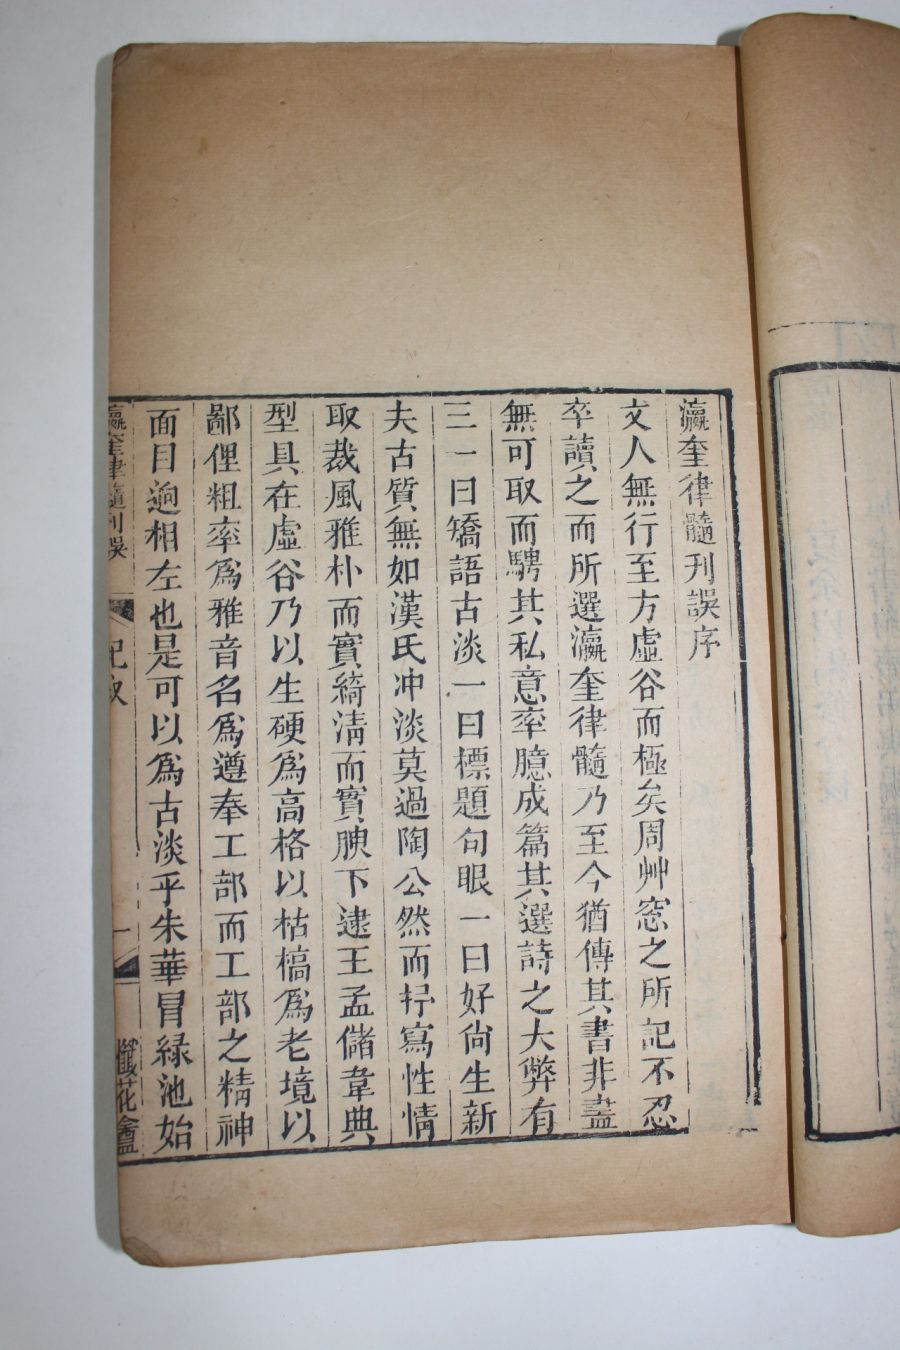 瀛奎律髓刊誤序
文人無行至方虛谷而極矣周艸窓之所記不忍
卒讀之而所選瀛奎律髓乃至今猶傳其書非盡
無可取而騁其私意率臆成篇其選詩之大弊有
三一曰矯語古淡一曰標題句眼一曰好尙生新
夫古質無如漢氏冲淡莫過陶公然而抒寫性情
取裁風雅朴而實綺淸而實腴下逮王孟儲韋典
型具在虛谷乃以生硬爲高格以枯槁爲老境以
鄙俚粗率爲雅音名爲遵奉工部而工部之精神
面目逈相左也是可以爲古淡乎朱華冒緑池始
瀛奎律髓刊誤 紀敘 一 懺花盦